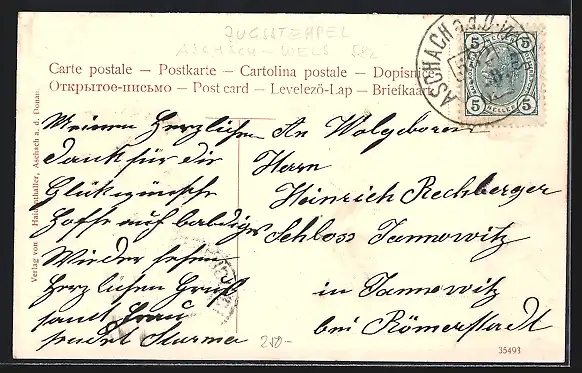 ZUGSSTEMPEL
ASCHACH – WELS 582
Carte postale – Postkarte – Cartolina postale – Dopisnice
Открытое-письмо – Post card – Levelező-Lap – Briefkaart
ASCHACH a. d. D.
5 5
HELLER
5 5
Meinen Herzlichen
Dank für die
Glükwünsche
Hoffe auf baldiges
Wieder sehen
Herzlichen Gruß
samt Frau
sendet Sturma
An Wolgeboren
Herrn
Heinrich Rechberger
Schloss Jannowitz
in Jannowitz
bei Römerstadt
Verlag von Haidenthaller, Aschach a. d. Donau.
250-
35493